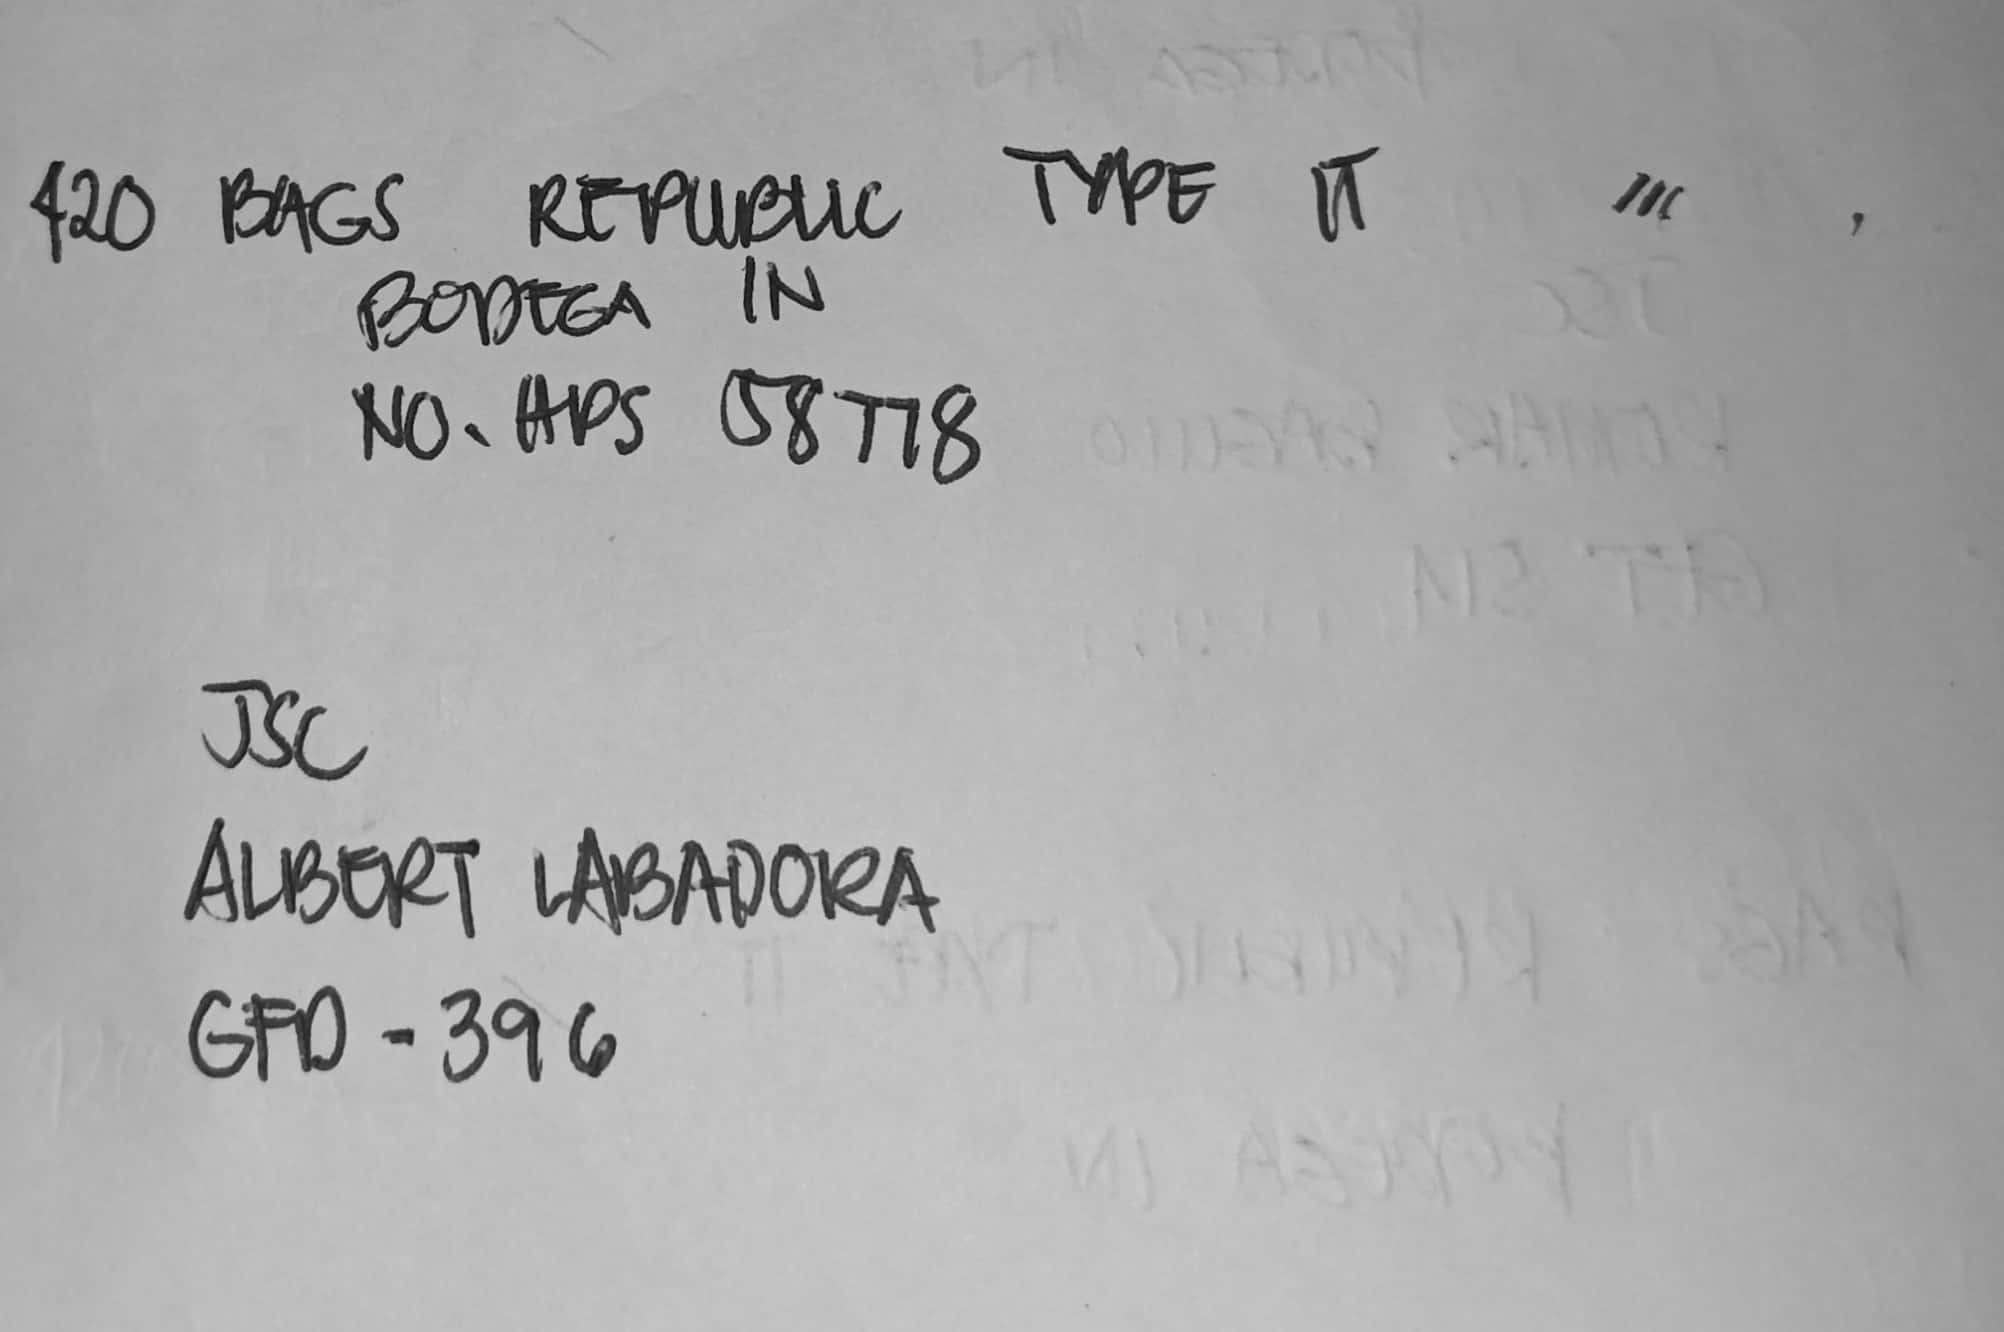 420 BAGS REPUBLIC TYPE IT
BODEGA IN
NO. HPS 58778
JSC
ALBERT LABADORA
GFD - 396